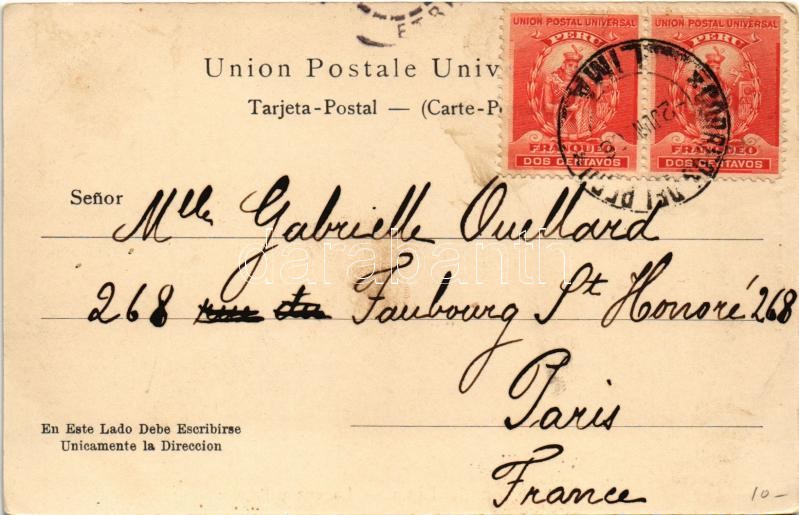 UNION POSTAL UNIVERSAL UNION POSTAL UNIVERSAL
PERU PERU
FRANQUEO FRANQUEO
DOS CENTAVOS DOS CENTAVOS
LIMA
CORREOS DEL PERU
2 JUN
Union Postale Unive
Tarjeta-Postal — (Carte-Po
Señor
Mlle Gabrielle Ouellard
268 rue du Faubourg St Honoré 268
Paris
France
En Este Lado Debe Escribirse
Unicamente la Direccion
darabanth
10-